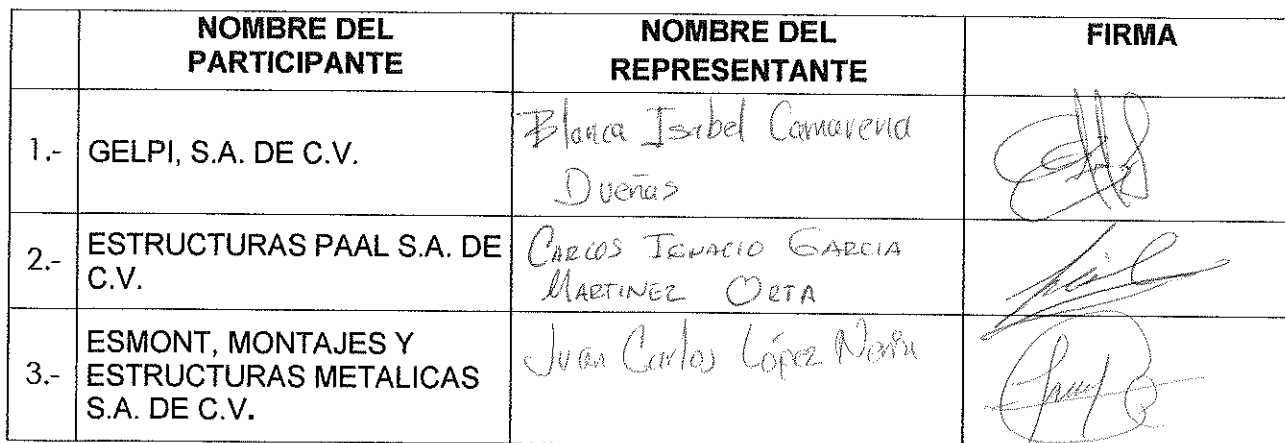 NOMBRE DEL PARTICIPANTE
NOMBRE DEL REPRESENTANTE
FIRMA
1.-
GELPI, S.A. DE C.V.
Blanca Isabel Camarena
Dueñas
2.-
ESTRUCTURAS PAAL S.A. DE
C.V.
CARLOS IGNACIO GARCIA
MARTINEZ ORTA
3.-
ESMONT, MONTAJES Y
ESTRUCTURAS METALICAS
S.A. DE C.V.
Juan Carlos López